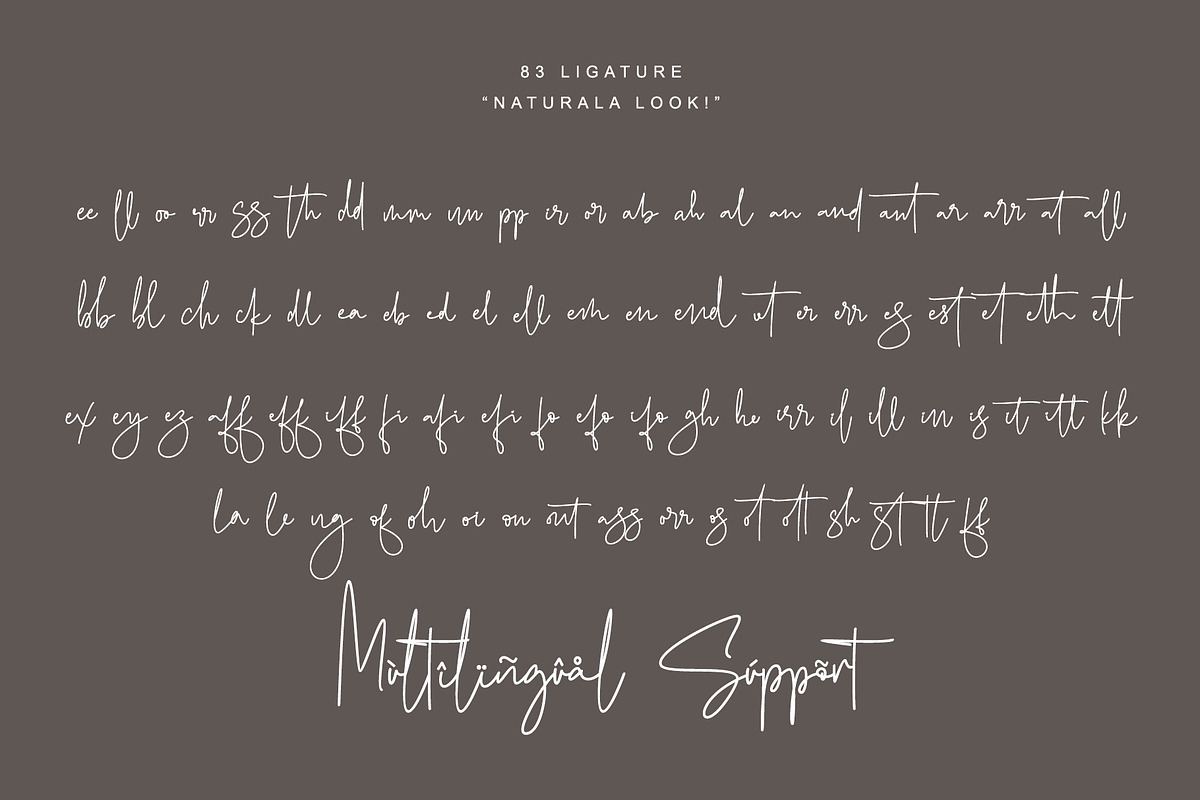 83 LIGATURE
“NATURALA LOOK!”
ee ll oo rr ss th dd mm nn pp ir or ab ah al an and ant ar arr at all
bb bl ch ck dl ea eb ed el ell em en end ut er err es est et eth ett
ex ey ez aff eff iff fi afi efi fo efo ifo gh he irr il ill in is it itt kk
la le ng of oh oi on ont ass orr os ot ott sh st tt ff
Mùltîlïñgûål Súppõrt